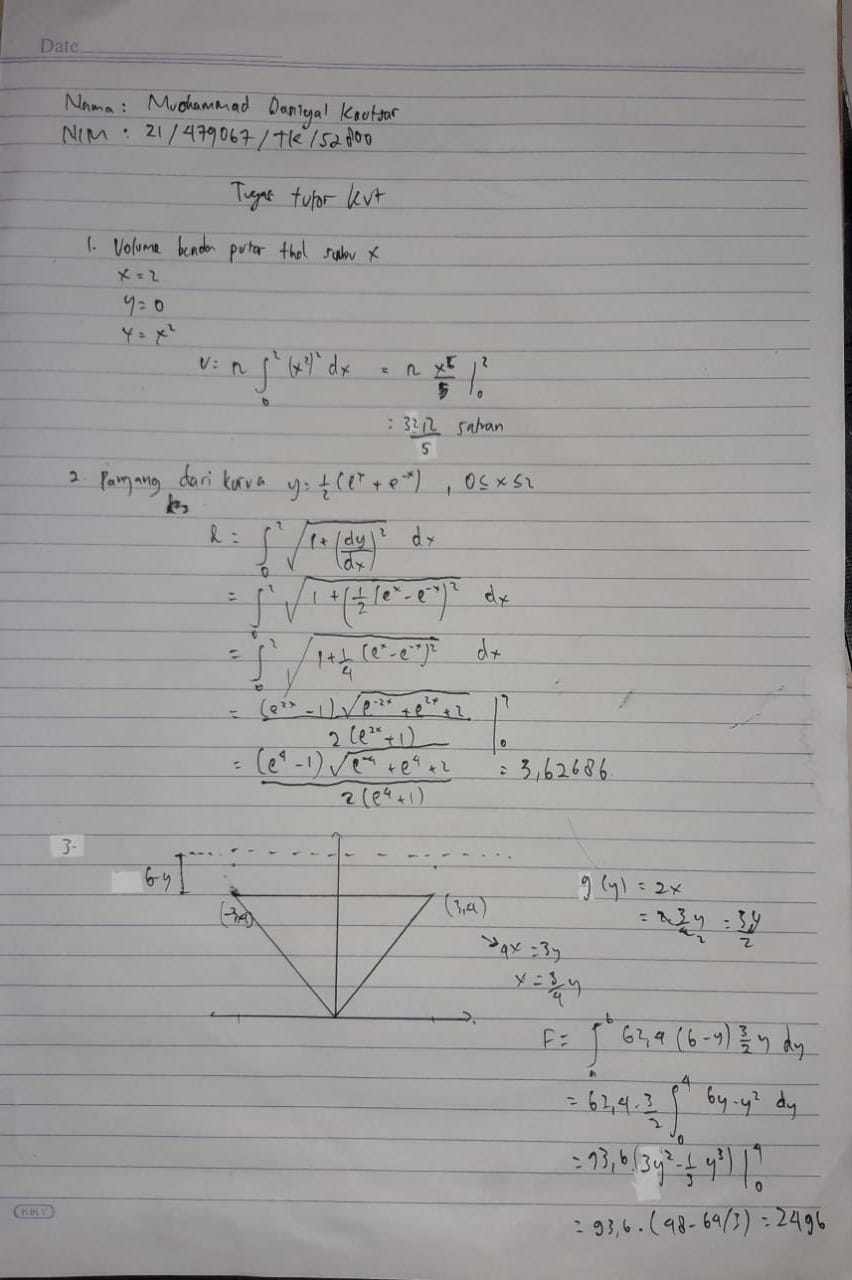 Date
Nama : Muchammad Daniyal Kautsar
NIM : 21/479067/TK/52800
Tugas tutor kvt
1. Volume benda putar thd sumbu x
x = 2
y = 0
y = x²
V = π ∫₀² (x²)² dx = π x⁵/5 |₀²
= 32π/5 satuan
2. Panjang dari kurva y = ½ (eˣ + e⁻ˣ) , 0 ≤ x ≤ 2
l = ∫₀² √(1 + (dy/dx)²) dx
= ∫₀² √(1 + (½ (eˣ - e⁻ˣ)²) dx
= ∫₀² √(1 + ¼ (eˣ - e⁻ˣ)²) dx
= (e²ˣ - 1) √(e⁻²ˣ + e²ˣ + 2) / 2(e²ˣ + 1) |₀²
= (e⁴ - 1) √(e⁻⁴ + e⁴ + 2) / 2(e⁴ + 1) = 3,62686
3.
6-y
(-3,4)
(3,4)
g(y) = 2x
= 2·3y/4 = 3y/2
4x = 3y
x = 3/4 y
F = ∫ 62,4 (6-y) 3/2 y dy
= 62,4 · 3/2 ∫₀⁴ 6y - y² dy
= 93,6 (3y² - 1/3 y³) |₀⁴
= 93,6 · (48 - 64/3) = 2496
KIKY